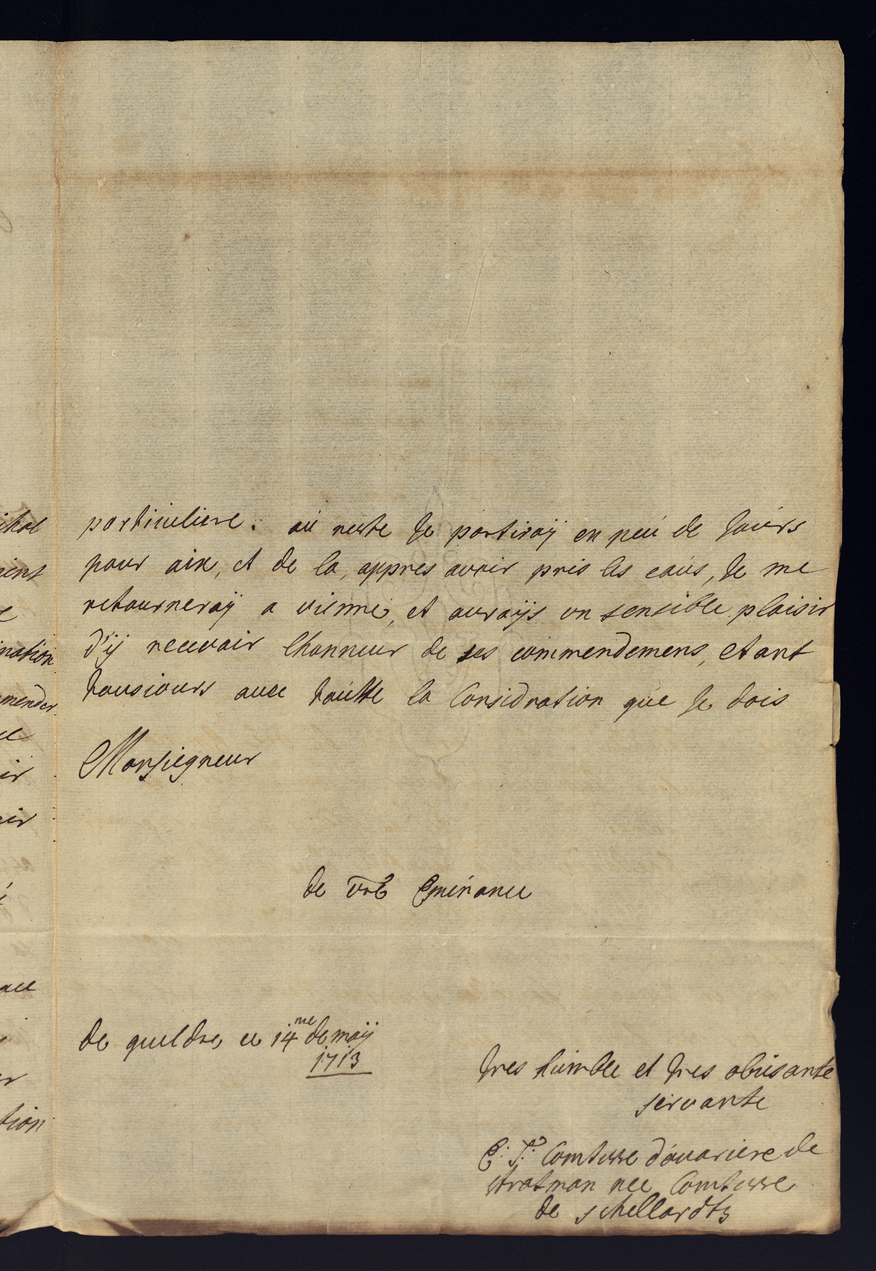 particuliere. aú reste Je partiraÿ en peú de Joúrs
pour aix, et de la, appres avoir pris les eaús, Je me
retourneraÿ a vienne, et auraÿs un sensible plaisir
d'ÿ recevoir lhonneur de ses commendemens, etant
tousiours avec toútte la Considration que Je dois
Monseigneur
de vre Eminance
de gueldre ce 14me de maÿ
1713
tres húmble et tres obeisante
servante
C: J: Comtesse doúariere de
Stratman nee Comtesse
de schellardts
nation
mender
ir
tion